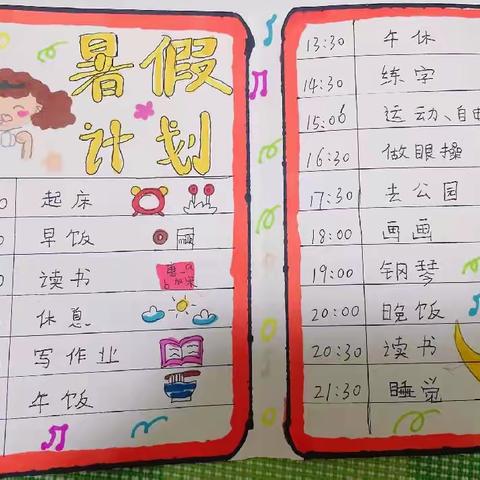 暑假
计划
0 起床
0 早饭
0 读书
休息
写作业
午饭
13:30 午休
14:30 练字
15:06 运动、自由
16:30 做眼操
17:30 去公园
18:00 画画
19:00 钢琴
20:00 晚饭
20:30 读书
21:30 睡觉